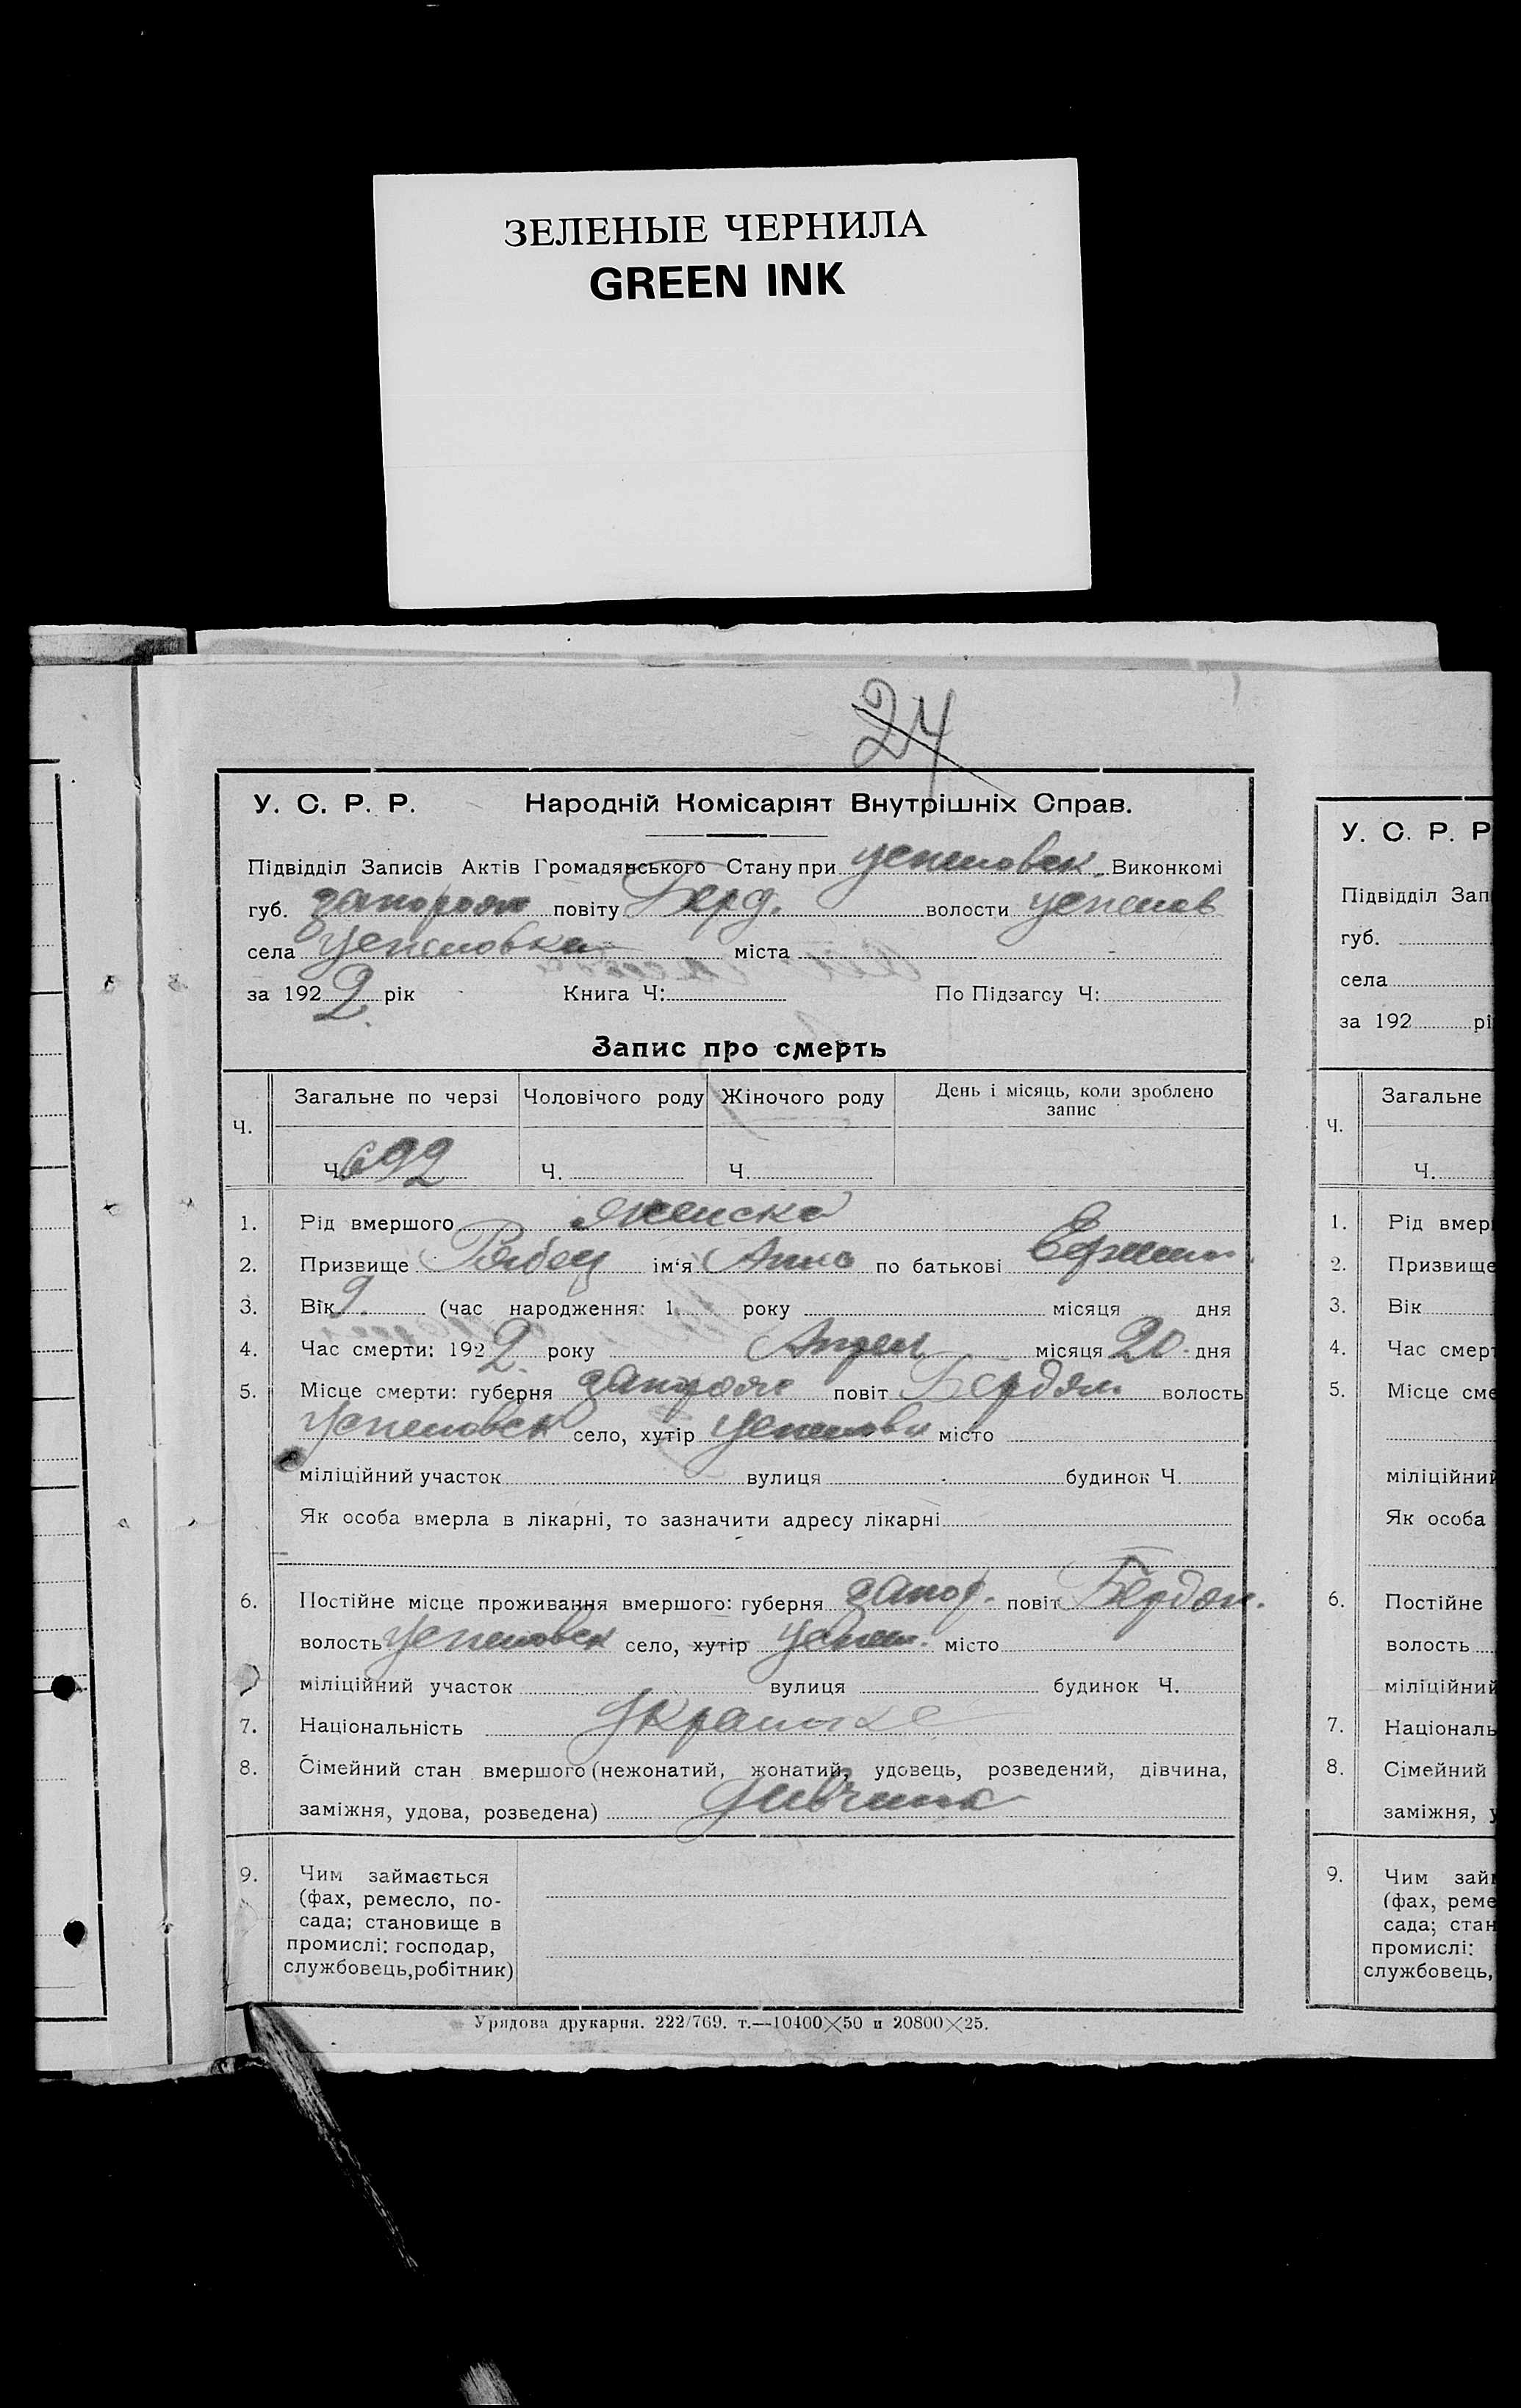 ЗЕЛЕНЫЕ ЧЕРНИЛА
GREEN INK
24
У. С. Р. Р. Народній Комісаріят Внутрішніх Справ.
Підвідділ Записів Актів Громадянського Стану при Успеновск. Виконкомі
губ. Запорож повіту Берд. волости Успенов
села Успеновка міста
за 1922 рік Книга Ч: По Підзагсу Ч:
Запис про смерть
Ч. Загальне по черзі Чоловічого роду Жіночого роду День і місяць, коли зроблено
запис
Ч. 692 Ч. Ч.
1. Рід вмершого женска
2. Призвище Рябец ім'я Анна по батькові
3. Вік 9. (час народження: 1 року місяця дня
4. Час смерти: 1922 року Апрел місяця 20 дня
5. Місце смерти: губерня Запорож повіт Бердян волость
Успеновск село, хутір Успеновк місто
міліційний участок вулиця будинок Ч.
Як особа вмерла в лікарні, то зазначити адресу лікарні
6. Постійне місце проживання вмершого: губерня Запор. повіт Бердян.
волость Успеновск село, хутір Успен. місто
міліційний участок вулиця будинок Ч.
7. Національність
8. Сімейний стан вмершого (нежонатий, жонатий, удовець, розведений, дівчина,
заміжня, удова, розведена) дивчина
9. Чим займається
(фах, ремесло, по-
сада; становище в
промислі: господар,
службовець, робітник)
Урядова друкарня. 222/769. т.—10400×50 и 20800×25.
У. С. Р. Р
Підвідділ Зап
губ.
села
за 192 рі
Ч. Загальне
Ч.
1. Рід вмер
2. Призвище
3. Вік
4. Час смерт
5. Місце сме
міліційний
Як особа
6. Постійне
волость
міліційний
7. Національ
8. Сімейний
заміжня, у
9. Чим займ
(фах, реме
сада; стан
промислі:
службовець,